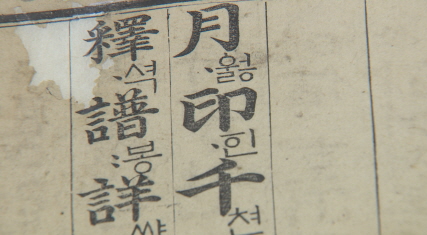 月·웛印·ᅙᅵᆫ千쳔
釋·셕譜:봉詳